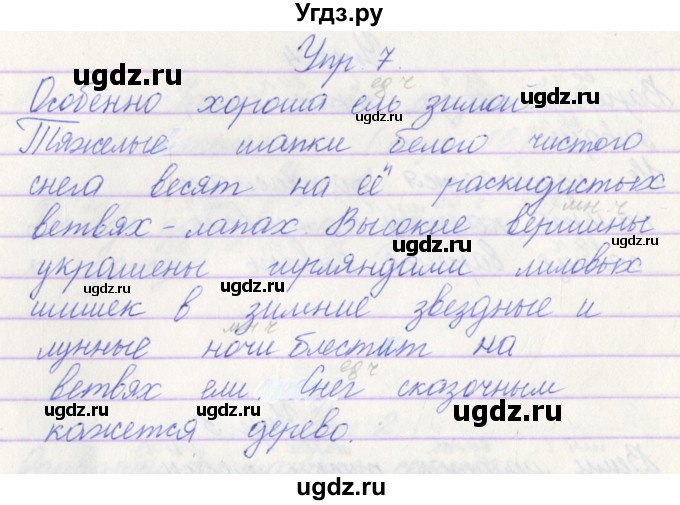 Угдз.ру
Упр 7.
ugdz.ru ед ч ugdz.ru
Особенно хороша ель зимой
Тяжелые шапки белого чистого
ugdz.ru
снега весят на её раскидистых
мн ч
ветвях-лапах. Высокие вершины
ugdz.ru
украшены гирляндами лиловых
ugdz.ru ugdz.ru
шишек в зимние звездные и
мн ч
лунные ночи блестит на
ед ч
ветвях ели. Снег сказочным
ugdz.ru ugdz.ru ugdz.ru
кажется дерево.
ugdz.ru